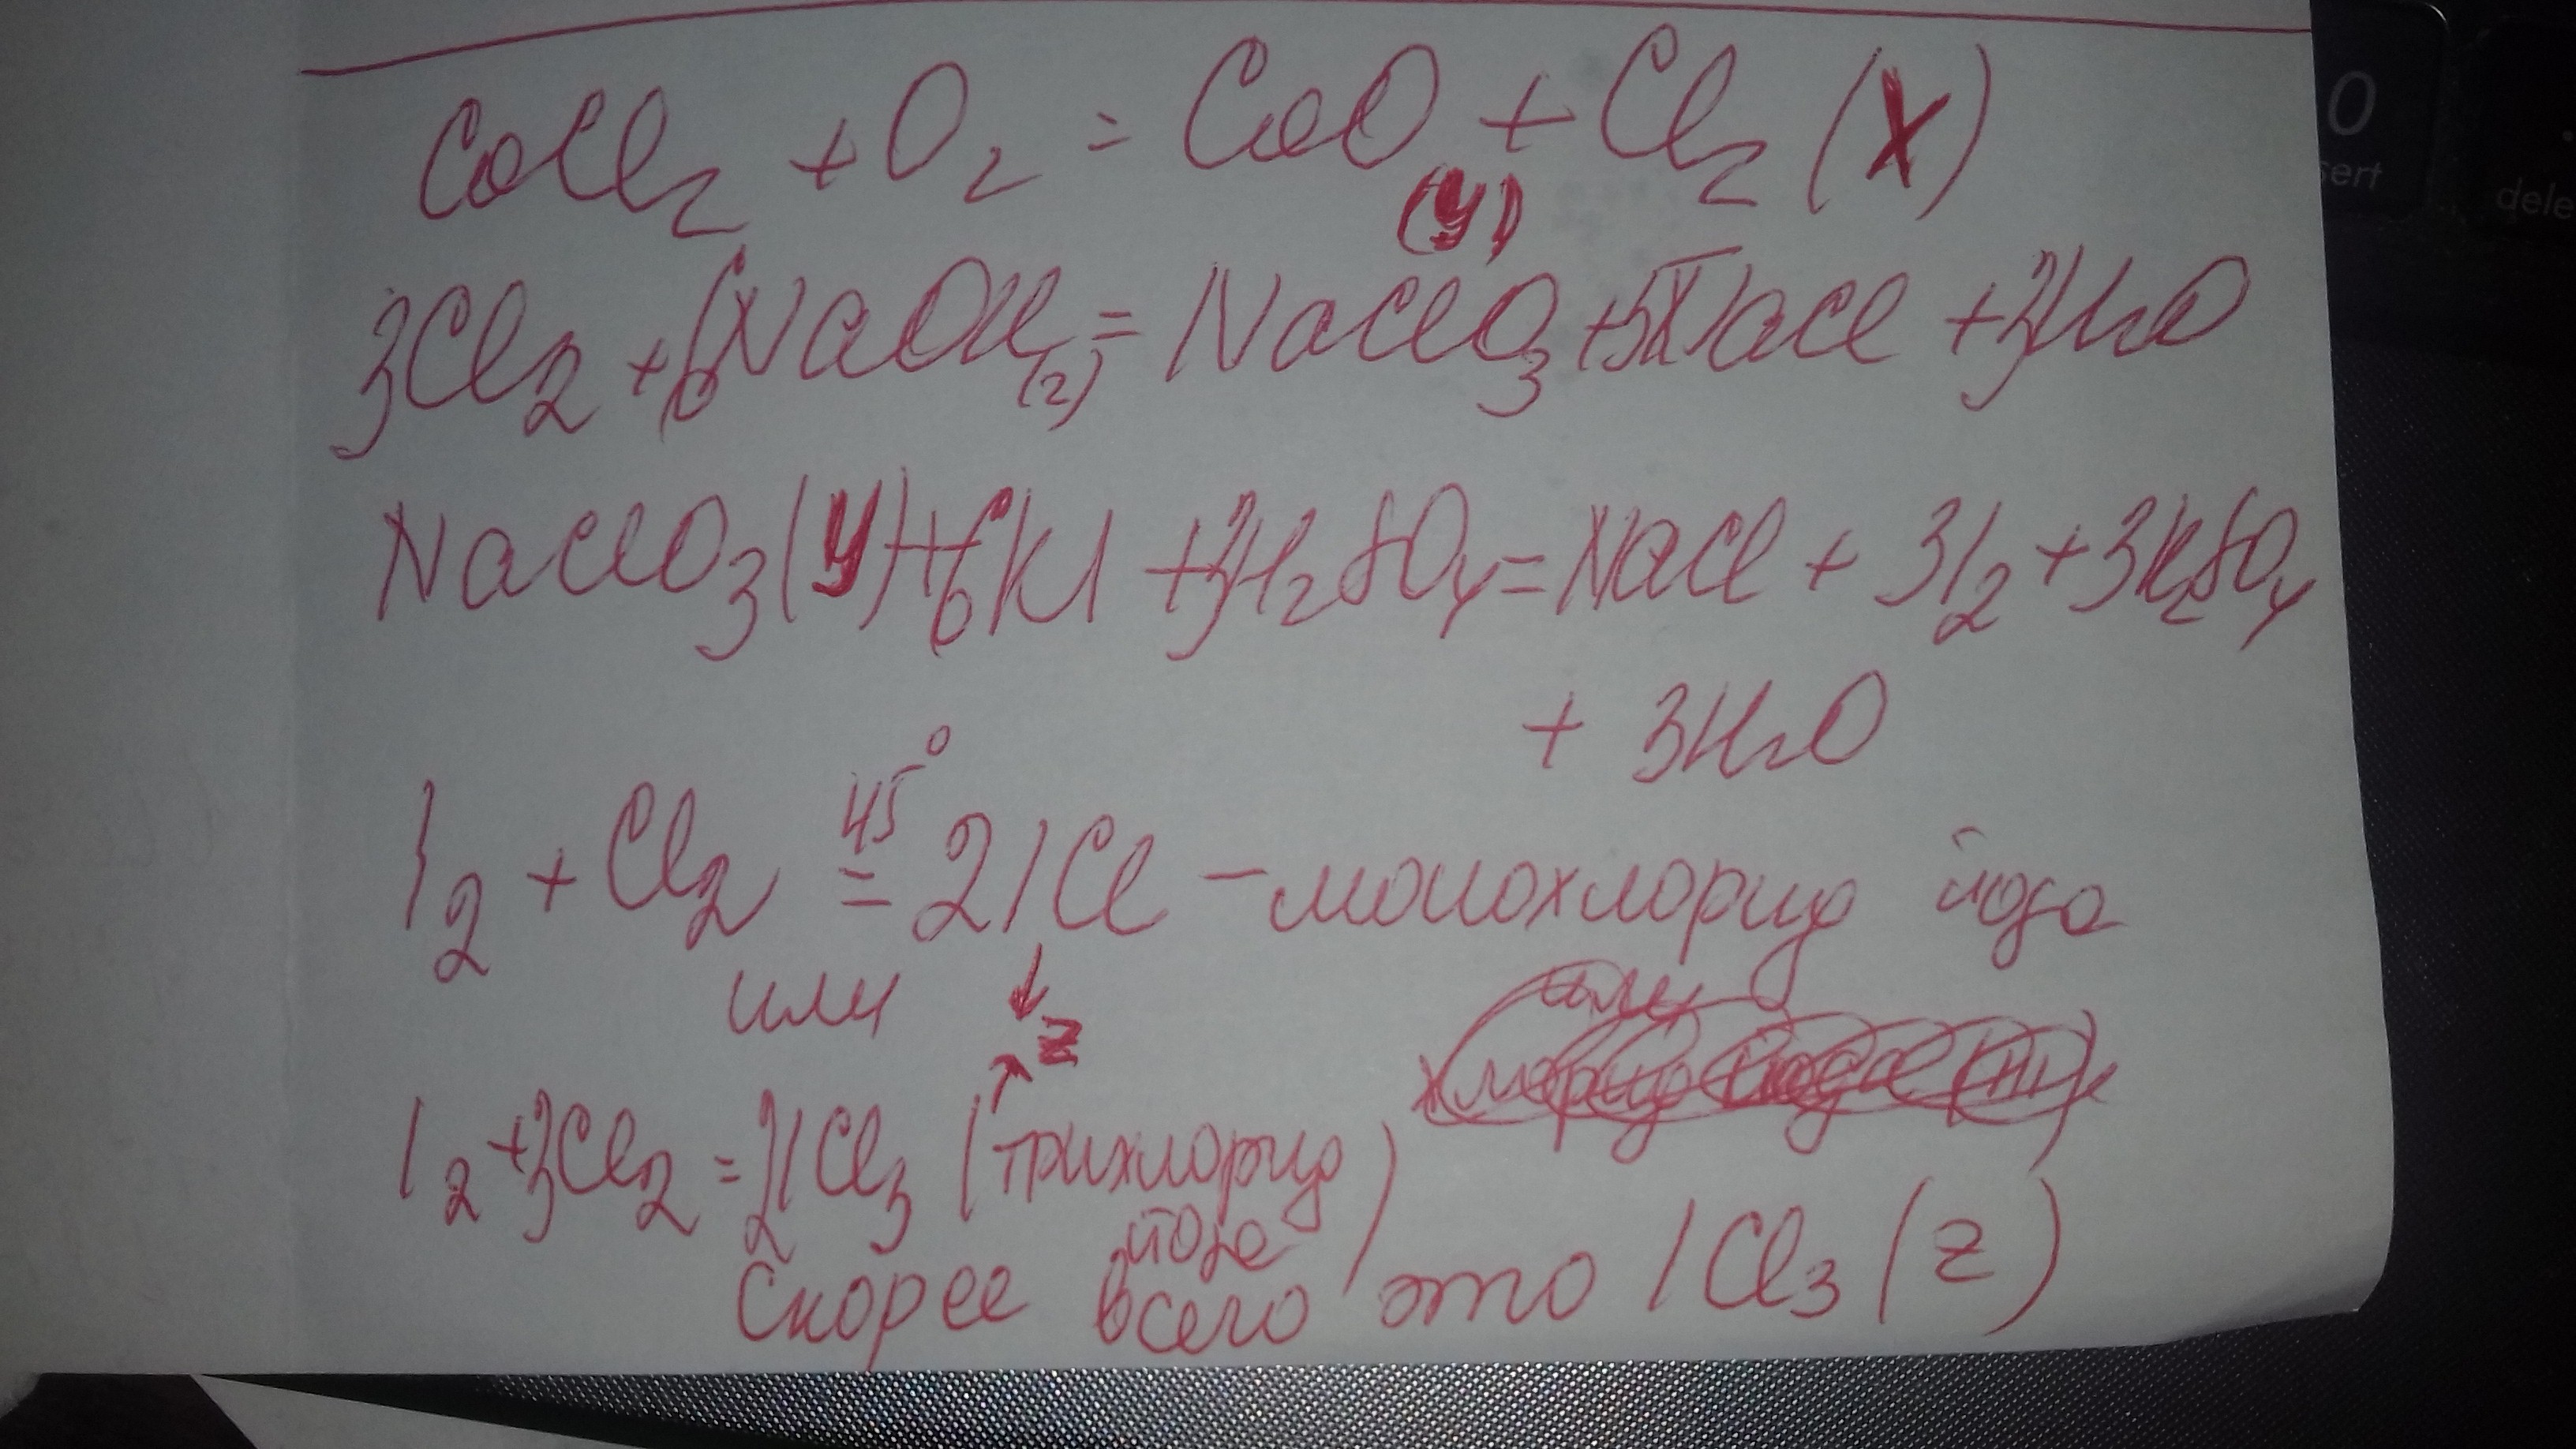 CoCl₂ + O₂ = CoO + Cl₂ (X)
(Y)
3Cl₂ + 6NaOH(г) = NaClO₃ + 5NaCl + 3H₂O
NaClO₃ (Y) + 6KI + 3H₂SO₄ = NaCl + 3I₂ + 3K₂SO₄
+ 3H₂O
I₂ + Cl₂ =45° 2ICl – монохлорид йода
или ↓ Z ↗
I₂ + 3Cl₂ = 2ICl₃ (трихлорид йода)
Скорее всего это ICl₃ (Z)
0
sert
dele